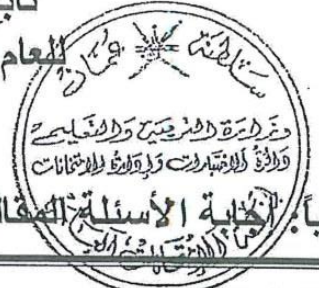 للعام
سلطنة عمان
وزارة التربية والتعليم
دائرة الاختبارات وإدارة الامتحانات
إجابة الأسئلة المقال